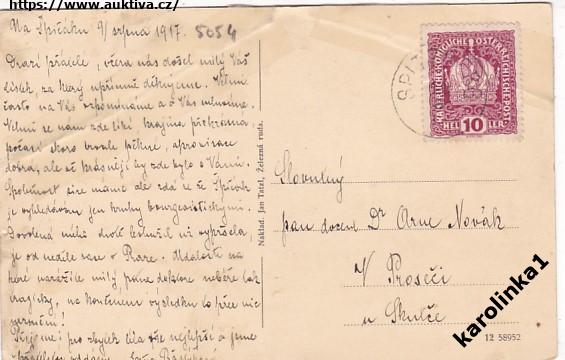 https://www.auktiva.cz/
Na Špičáku 9/ srpna 1917. 5054
Drazí přátelé, včera nás došel milý Váš
lístek, za který upřímně děkujeme. Velmi
často na Vás vzpomínáme a o Vás mluvíme.
Velmi se nám zde líbí, krajina překrásná,
počasí skoro trvale pěkné, aprovisace
dobrá, ale což krásněji by zde bylo s Vámi.
Společnost sice máme ale zdá se že Špičák
je vyhledáván jen kruhy bourgeoistickými.
Dovolená mého drahé už vypršela
je od neděle zase v Praze. Události na
které narážíte milý, pane doktore neberte tak
tragicky, na konečném výsledku to přece nic
nezmění!
Přejeme Vám pro zbytek léta vše nejlepší a jsme
oddaní
Naklad. Jan Tatzl, Železná ruda.
SPITZ
KAISERLICHE KÖNIGLICHE ÖSTERREICHISCHE POST
HEL 10 LER
Slovutný
pan docent Dr Arne Novák
V Proseči
u Skutče
12 58952
karolinka1